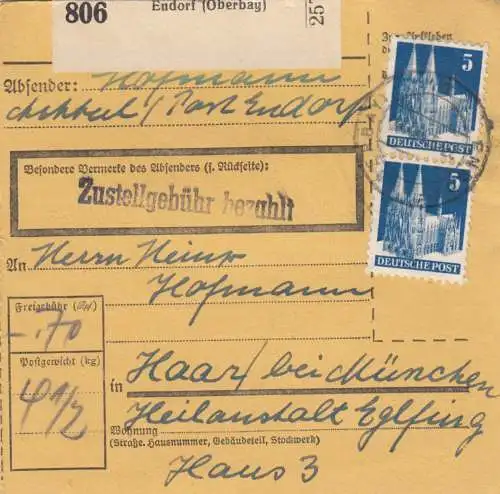 806
Endorf (Oberbay)
257
5
DEUTSCHE POST
5
DEUTSCHE POST
Absender: Hofmann
/ Post Endorf
Besondere Vermerke des Absenders (s. Rückseite):
Zustellgebühr bezahlt
An Herrn Heinr
Hofmann
Freigebühr (RM)
-.70
Postgewicht (kg)
4 1/2
in Haar / bei München
Heilanstalt Eglfing
Wohnung
(Straße, Hausnummer, Gebäudeteil, Stockwerk)
Haus 3